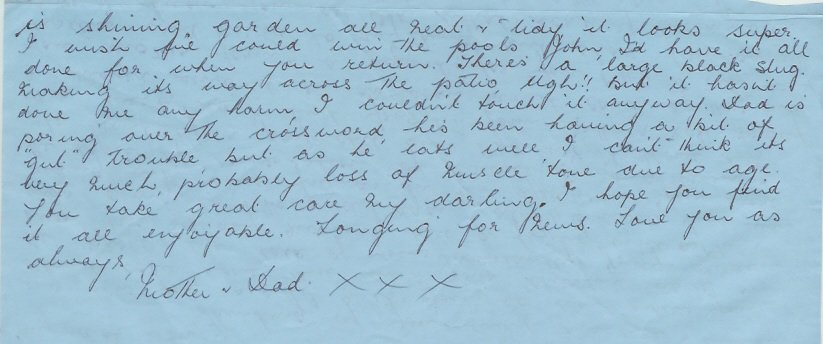 is shining garden all neat & tidy it looks super.
I wish we could win the pools John, I'd have it all
done for when you return. There's a large black slug
making its way across the patio, Ugh!! but it hasn't
done me any harm I couldn't touch it anyway. Dad is
poring over the crossword, he's been having a bit of
"gut" trouble but as he eats well I can't think its
very much, probably loss of muscle tone due to age.
You take great care my darling. I hope you find
it all enjoyable. Longing for news. Love you as
always,
Mother & Dad. X X X